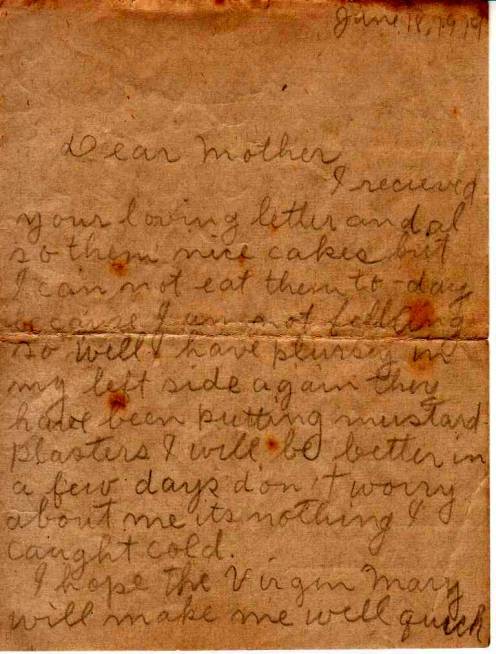 June 18, 1919
Dear Mother
I recieved
your loving letter and al
so them nice cakes but
I can not eat them to-day
because I am not felling
so well I have plursey in
my left side again they
have been putting mustard
plasters I will be better in
a few days don't worry
about me its nothing I
caught cold.
I hope the Virgin Mary
will make me well quick